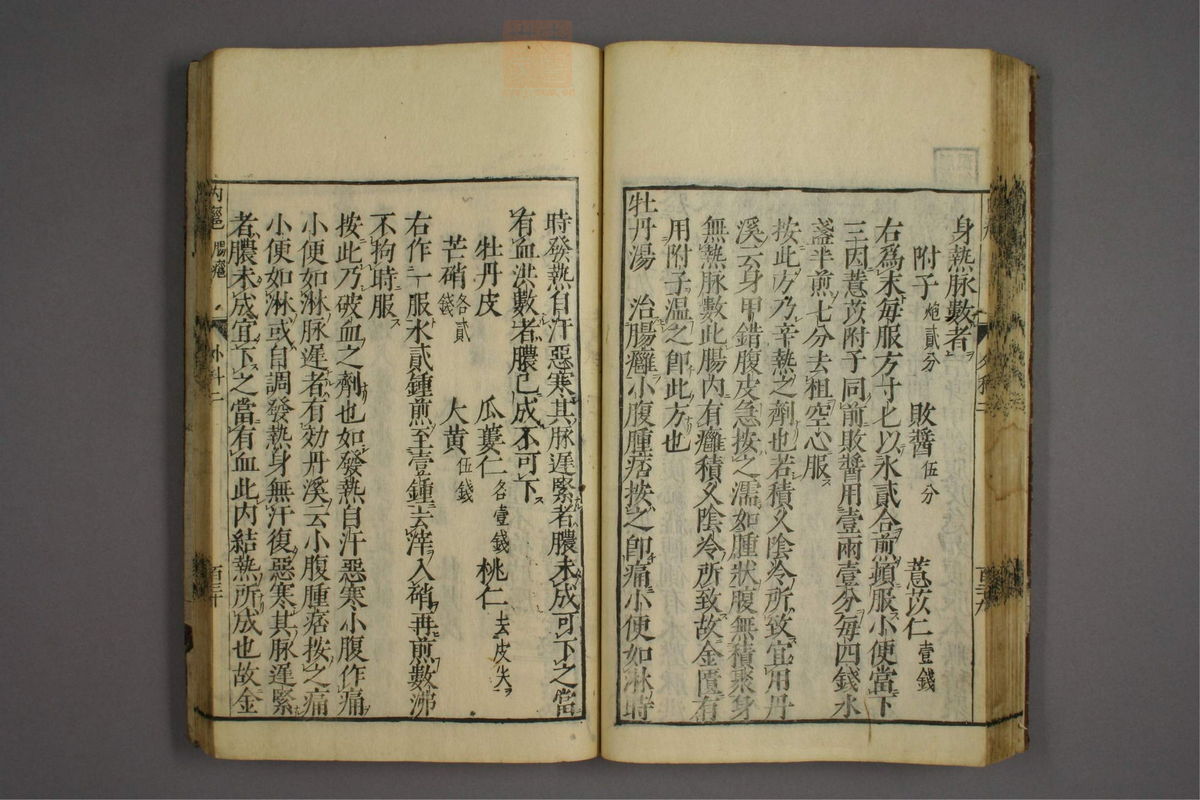 身熱脉數者
附子炮貳分 敗醬伍分 薏苡仁壹錢
右爲末每服方寸匕以水貳合煎頓服小便當下
三因薏苡附子同前敗醬用壹兩壹分每四錢水
盞半煎七分去粗空心服
按此方乃辛熱之劑也若積乆陰冷所致宜用丹
溪云身甲錯腹皮急按之濡如腫狀腹無積聚身
無熱脉數此腸内有癰積乆陰冷所致故金匱有
用附子温之即此方也
牡丹湯 治腸癰小腹腫痞按之即痛小便如淋時
時發熱自汗惡寒其脉遲緊者膿未成可下之當
有血洪數者膿已成不可下
牡丹皮 瓜蔞仁各壹錢 桃仁去皮尖
芒硝各貳錢 大黄伍錢
右作一服水貳鍾煎至壹鍾去滓入硝再煎數沸
不拘時服
按此乃破血之劑也如發熱自汗惡寒小腹作痛
小便如淋脉遲者有効丹溪云小腹腫痞按之痛
小便如淋或自調發熱身無汗復惡寒其脉遲緊
者膿未成宜下之當有血此内結熱所成也故金
内 腸癰 外科二 百三十